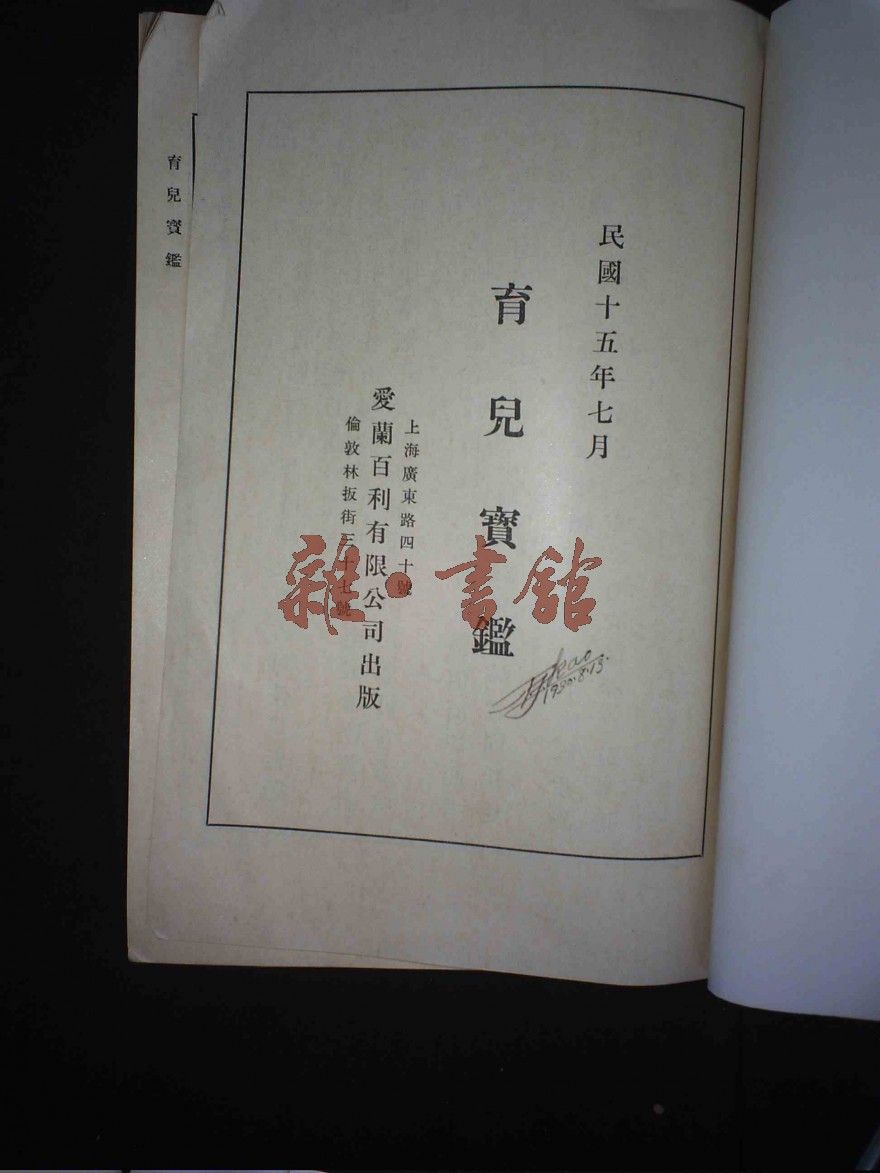 民國十五年七月
育兒寶鑑
上海廣東路四十號
愛蘭百利有限公司出版
倫敦林扳街三十七號
育兒寶鑑
雜·書館